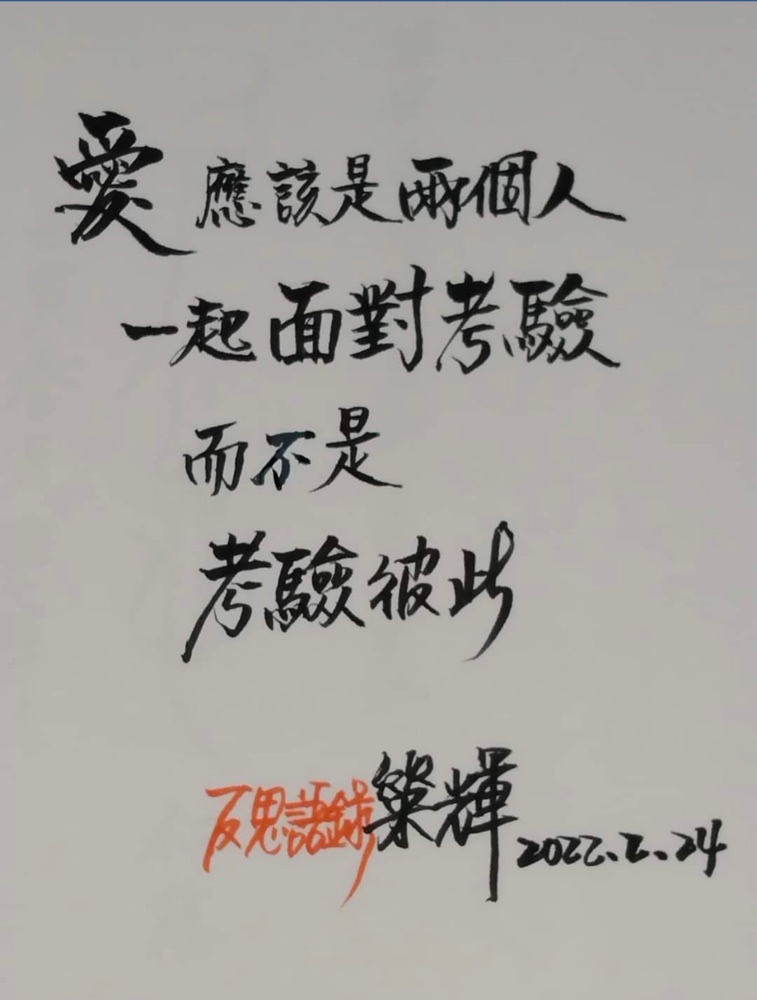 愛 應該是兩個人
一起面對考驗
而不是
考驗彼此
反思語錄 榮輝 2022.2.24